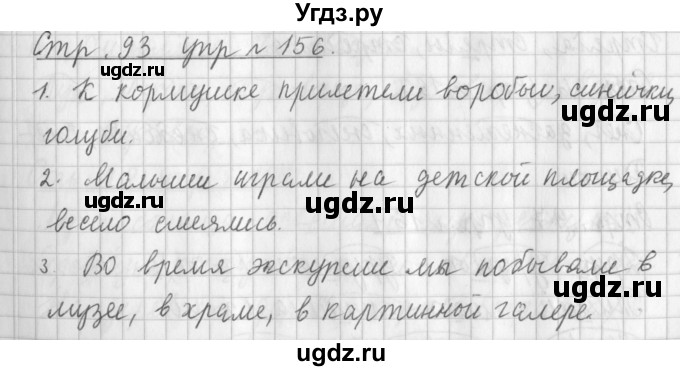 Угдз.ру
Стр. 93 упр № 156.
ugdz.ru ugdz.ru
1. К кормушке прилетели воробьи, синички,
ugdz.ru
голуби.
2. Малыши играли на детской площадке,
ugdz.ru ugdz.ru
весело смеялись.
ugdz.ru
3. Во время экскурсии мы побывали в
ugdz.ru ugdz.ru
музее, в храме, в картинной галере.
ugdz.ru